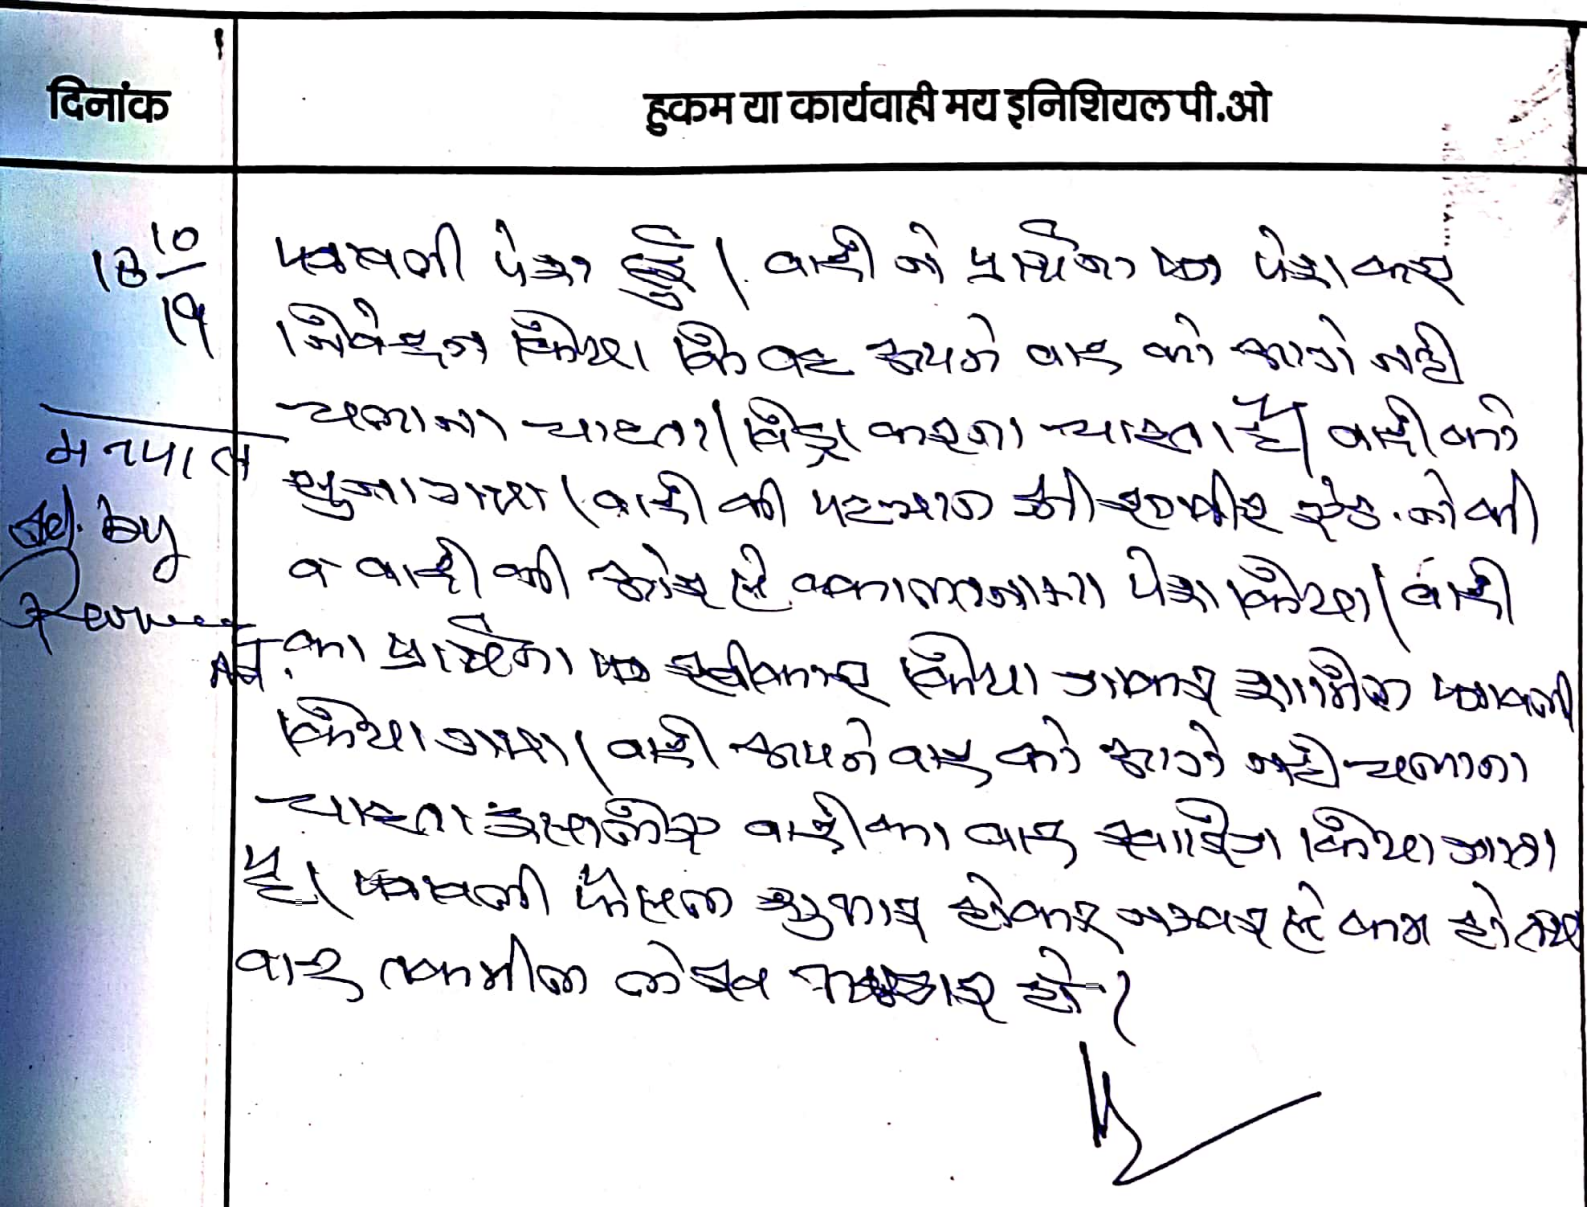 दिनांक
हुकम या कार्यवाही मय इनिशियल पी.ओ
18 10/19
पत्रावली पेश हुई। वादी ने प्रार्थना पत्र पेश कर
निवेदन किया कि वह अपने वाद को आगे नही
चलाना चाहता। विड्रा करना चाहता है। वादी को
सुना गया। वादी की पहचान श्री रणवीर एड. ने की
व वादी की ओर से वकालतनामा पेश किया। वादी
का प्रार्थना पत्र स्वीकार किया जाकर शामिल पत्रावली
किया गया। वादी अपने वाद को आगे नही चलाना
चाहता इसलिए वादी का वाद खारिज किया जाता
है। पत्रावली फैसल शुमार होकर नम्बर से कम हो तथा
वाद तकमील लेख दफ्तर हो।
मनपाल
Id. by
Adv.